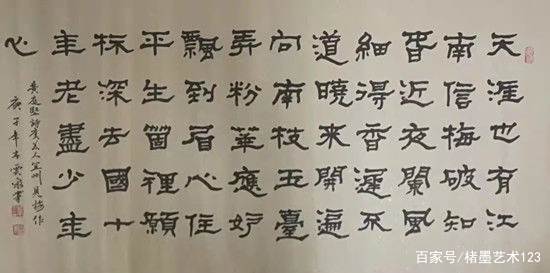 天涯也有江
南信梅破知
旾近夜闌風
細得香遲不
道曉來開遍
向南枝玉臺
弄粉華應妒
飄到眉心住
平生箇裡願
杯深去國十
年老盡少年
心
黄庭堅詞虞美人宜州見梅作
庚子年冬雲書
百家号/楮墨艺术123